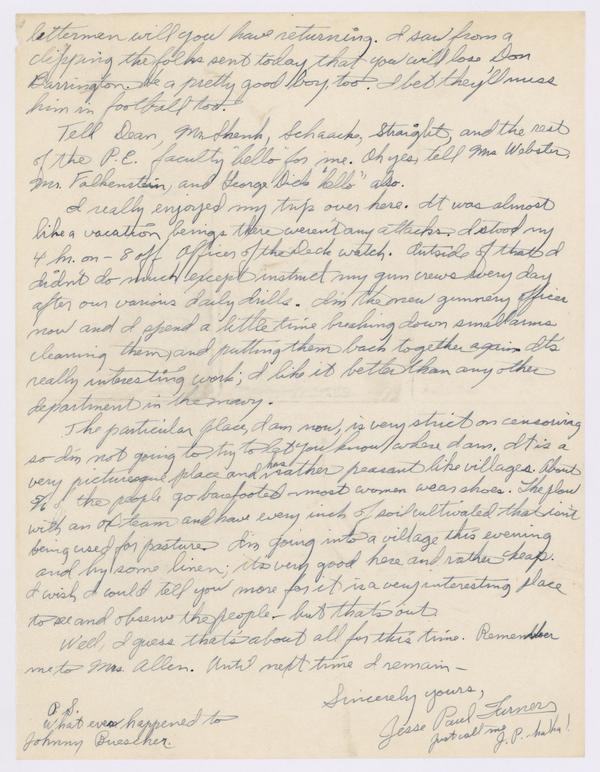 lettermen will you have returning. I saw from a
clipping the folks sent today that you will lose Don
Barrington. He a pretty good boy too. I bet they'll miss
him in football too.
Tell Dean, Mr. Shenk, Schaacke, Straight, and the rest
of the P.E. faculty "hello" for me. Oh yes, tell Mrs Webster,
Mr. Falkenstein, and George Dick "hello" also.
I really enjoyed my trip over here. It was almost
like a vacation, beings there weren't any attacks. I stood my
4 hr. on - 8 off Officer of the Deck watch. Outside of that I
didn't do much except instruct my gun crews every day
after our various daily drills. I'm the new gunnery officer
now and I spend a little time breaking down small arms
cleaning them, and putting them back together again. It's
really interesting work; I like it better than any other
department in the navy.
The particular place, I am now, is very strict on censoring
so I'm not going to try to let you know where I am. It is a
very picturesque place and has rather peasant like villages. About
the people go barefooted - most women wear shoes. The plow
with an ox team and have every inch of soil cultivated that isn't
being used for pasture. I'm going into a village this evening
and by some linen; its very good here and rather cheap.
I wish I could tell you more for it is a very interesting place
to see and observe the people - but that's out.
Well, I guess that's about all for this time. Remember
me to Mrs. Allen. Until next time I remain -
Sincerely yours,
Jesse Paul Turner
just call me
J.P. - haha!
P.S.
What ever happened to
Johnny Buescher.